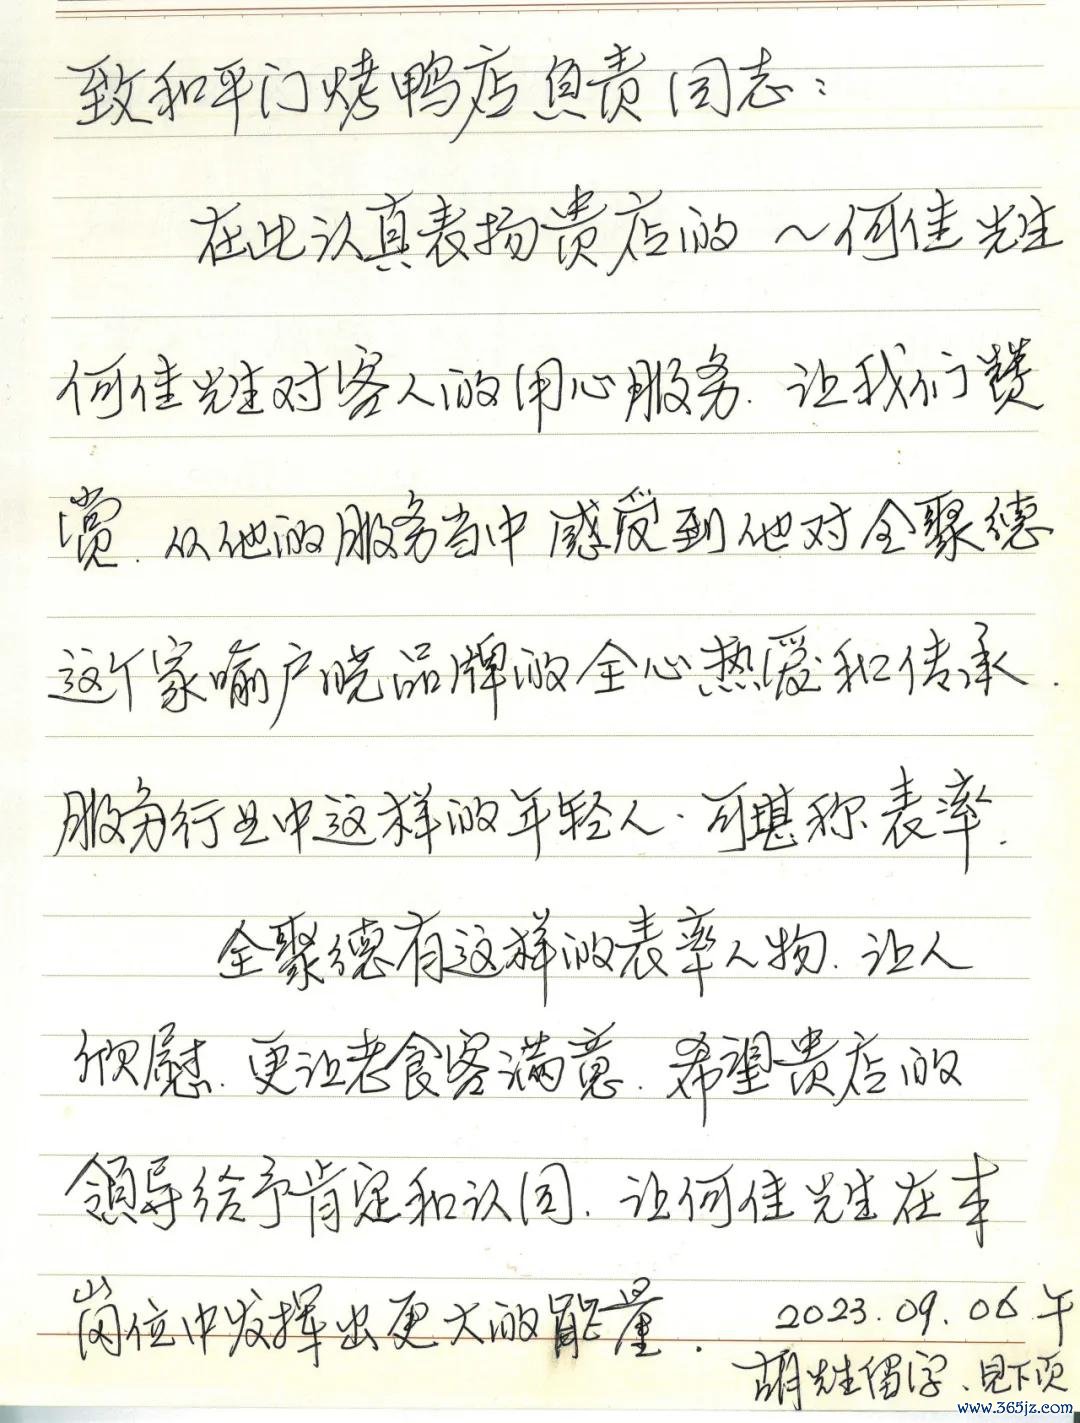 致和平门烤鸭店负责同志：
在此认真表扬贵店的～何佳先生
何佳先生对客人的用心服务.让我们赞
赏.从他的服务当中感受到他对全聚德
这个家喻户晓品牌的全心热爱和传承.
服务行业中这样的年轻人.可堪称表率.
全聚德有这样的表率人物.让人
欣慰.更让老食客满意.希望贵店的
领导给予肯定和认同.让何佳先生在本
岗位中发挥出更大的能量.
2023.09.06午
胡先生留字.见下页
www.365jz.com